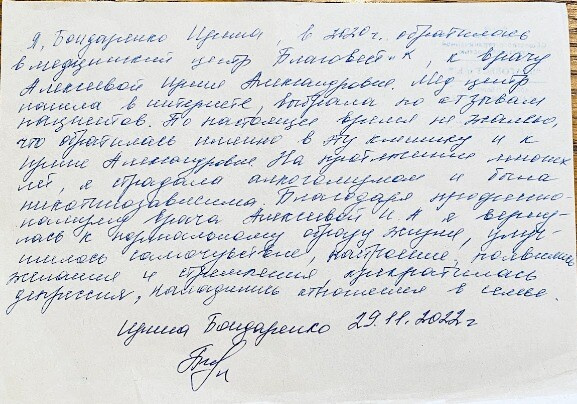 Я, Бондаренко Ирина, в 2020г. обратилась
в медицинский центр Благовест-К, к врачу
Алексеевой Ирине Александровне. Мед центр
нашла в интернете, выбрала по отзывам
пациентов. По настоящее время не жалею,
что обратилась именно в эту клинику и к
Ирине Александровне На протяжении многих
лет, я страдала алкоголизмом и была
никотинозависима. Благодаря професио-
нализму врача Алексеевой И.А я верну-
лась к нормальному образу жизни, улуч-
шилось самочувствие, настроение, появились
желания и стремления, прекратилась
депрессия, наладились отношения в семье.
Ирина Бондаренко 29.11.2022г